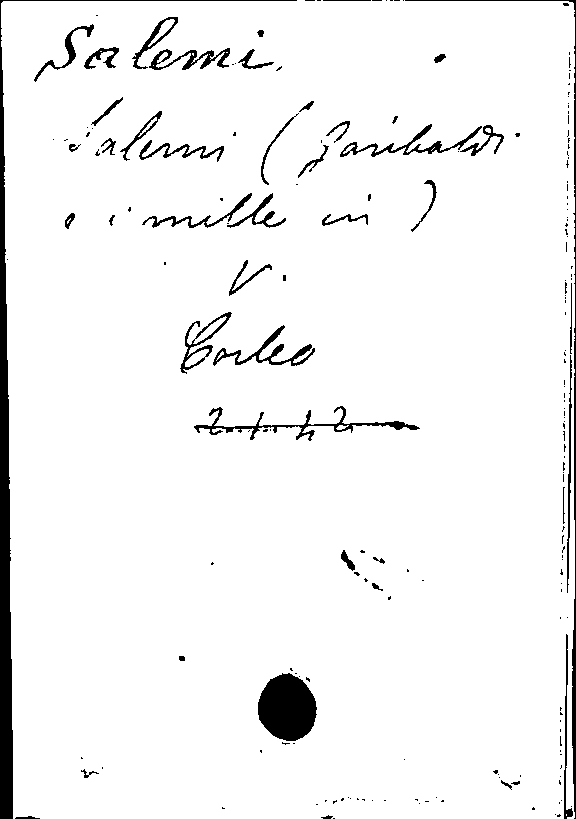 Salemi.
Salemi (Garibaldi
e i mille in)
V.
Corleo